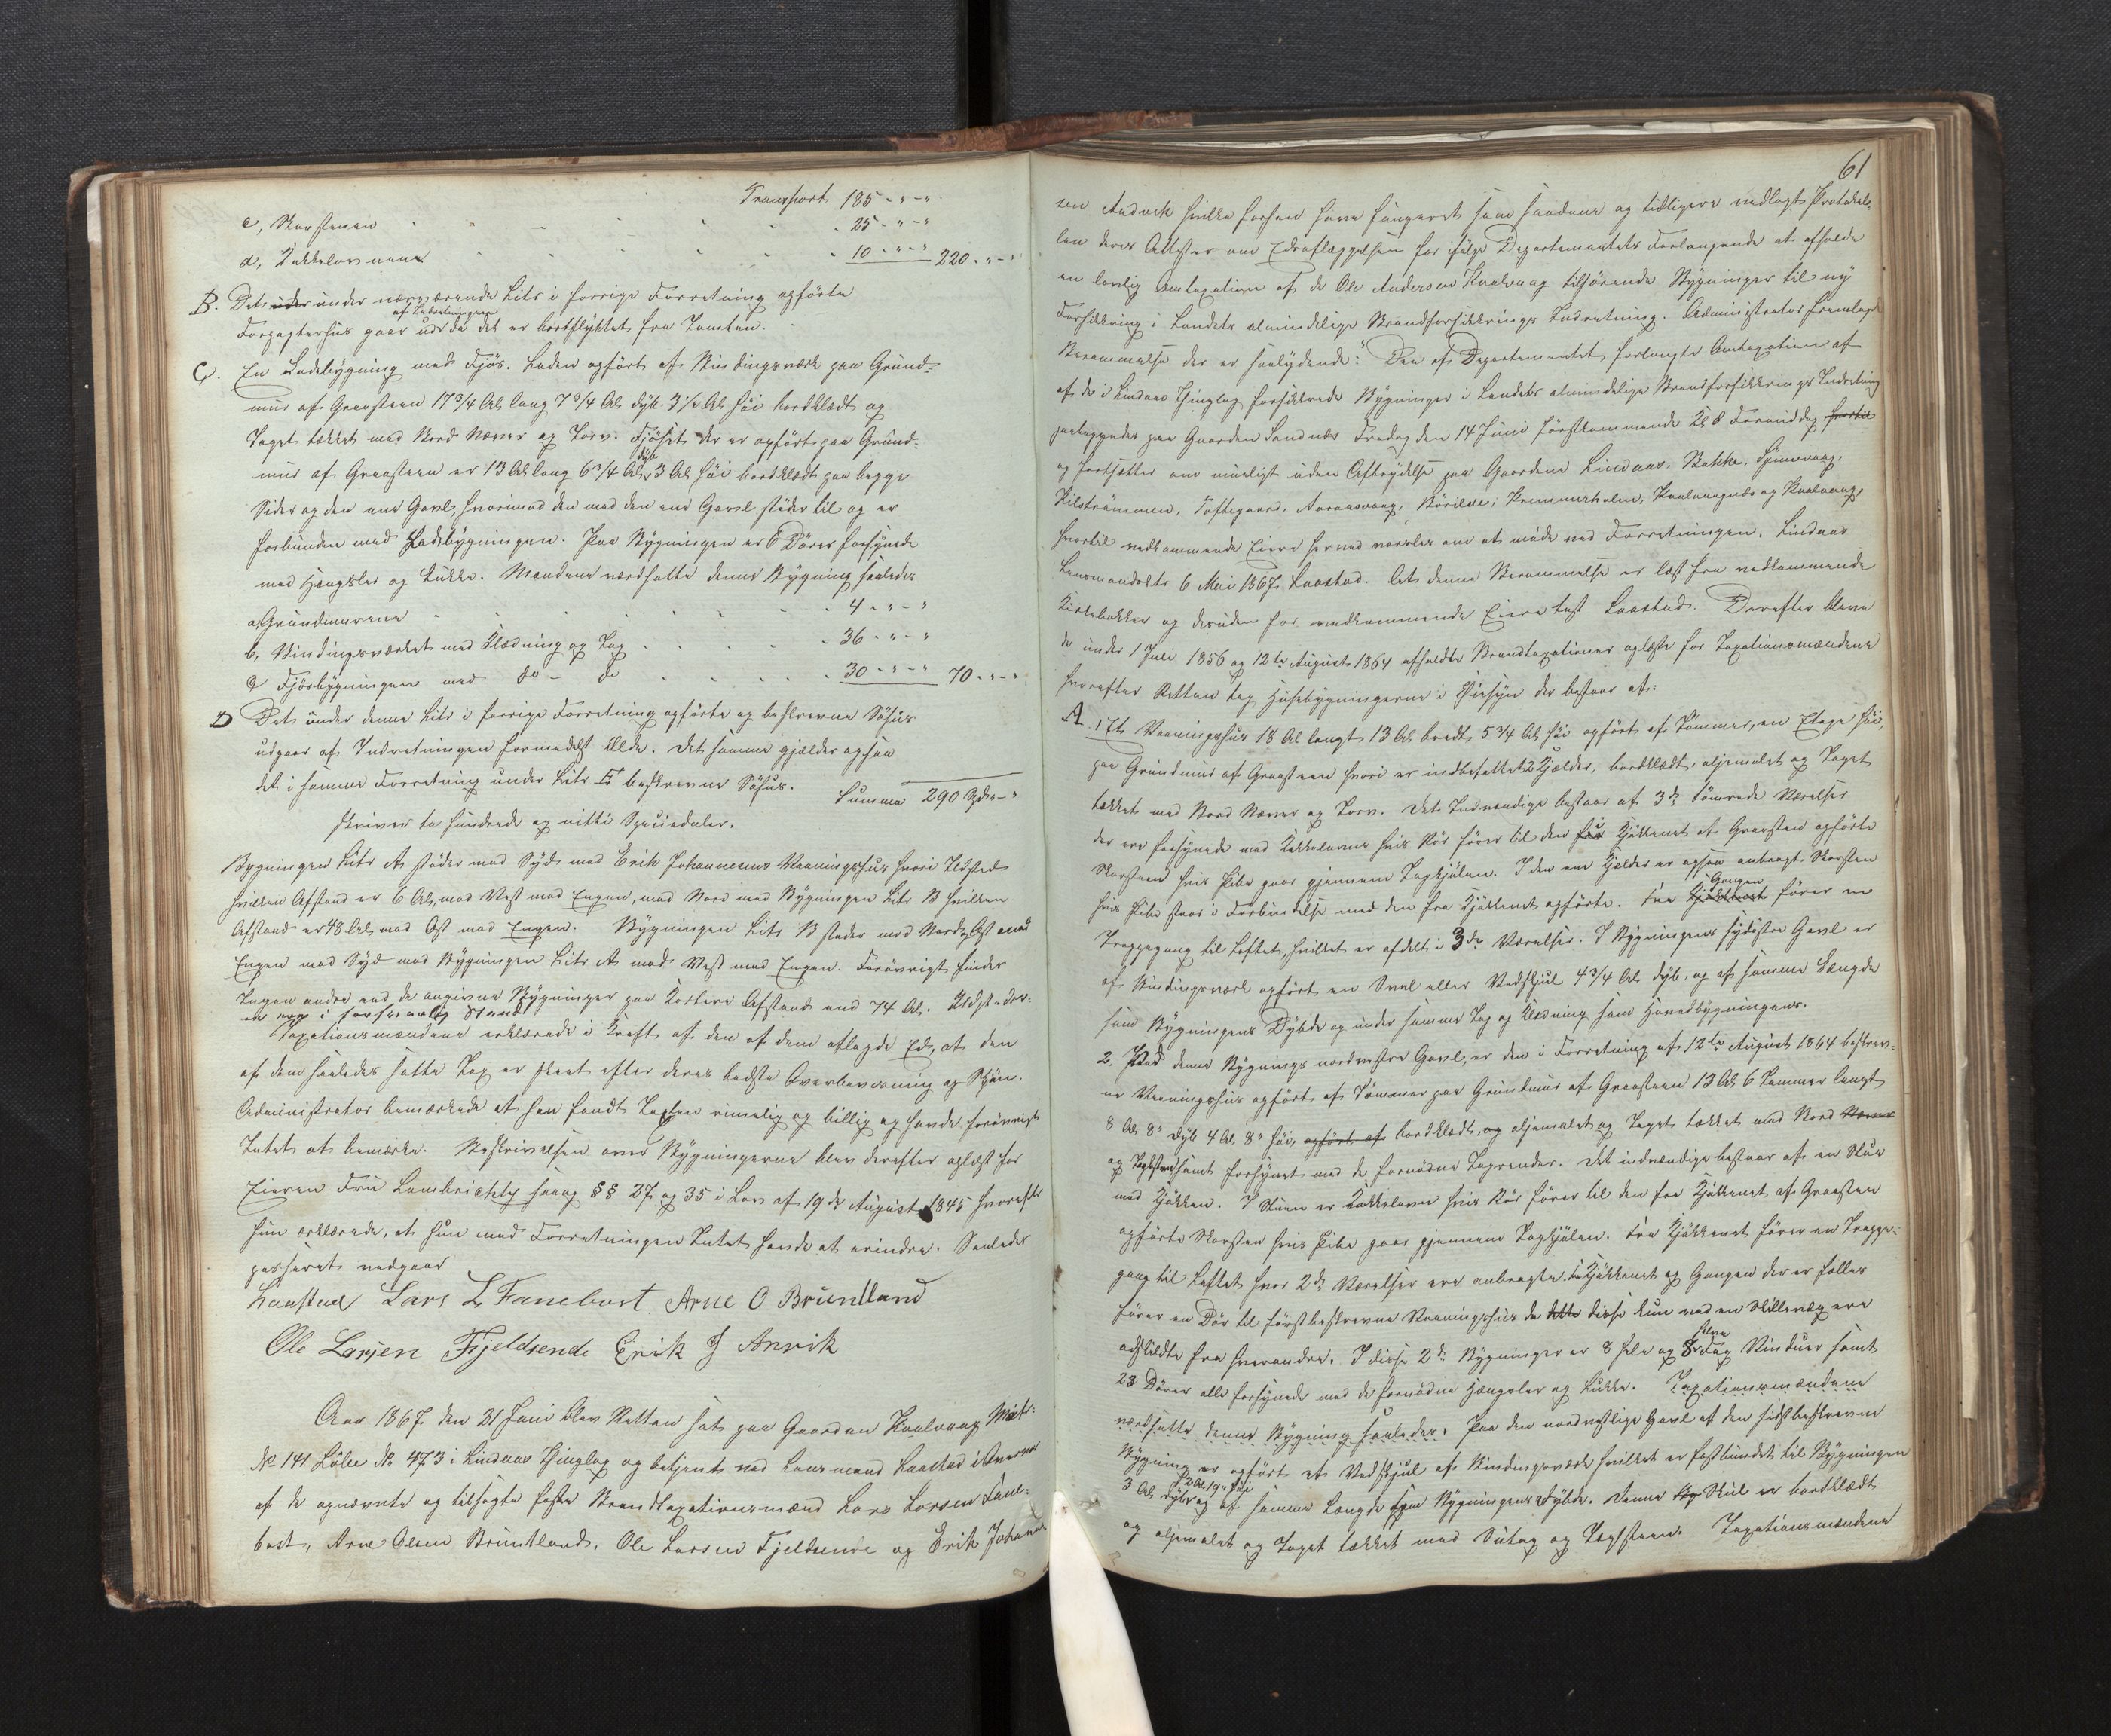 Transport 185 - " - "
c, Skorstenen 25 - " - "
d, Kakkelovnene 10 - " - " 220 - " - "
B. Det under nærværende Litr i forrige Forretning opførte
af Indretningen
Forpagterhus gaar ud da det er bortflyttet fra Tomten.
C. En Ladebygning med Fjøs. Laden opført af Bindingsværk paa Grund-
mur af Graasteen 17 3/4 Al. lang 7 3/4 Al. dyb 3 1/2 Al. høi bordklædt og
Taget tækket med Bord Næver og Torv. Fjøset der er opført paa Grund-
dyb
mur af Graasteen er 13 Al. lang 6 3/4 Al. 3 Al. høi bordklædt paa begge
Sider og den ene Gavl, hvorimod den med den ene Gavl støder til og er
forbunden med Ladebygningen. Paa Bygningen er 6 Døres forsynede
med Hængsler og Lukke. Mændene værdsatte denne Bygning saaledes
a, Grundmurene 4 - " - "
b, Bindingsværket med Klædning og Tag 36 - " - "
c Fjøsbygningen med do - do 30 - " - " 70 - " - "
D Det under denne Litr i forrige Forretning opførte og beskrevne Søhus
udgaar af Indretningen formedelst Ælde. Det samme gjælder ogsaa
det i samme Forretning under Litr E beskrevne Søhus. Summa 290 Spd " - "
skriver to hundrede og nitti Speciedaler.
Bygningen Litr A støder mod Syd mod Erik Johannesens Vaaningshus hvori Ildsted
hvilken Afstand er 6 Al, mod Vest mod Engen, mod Nord mod Bygningen Litr B hvilken
Afstand er 48 Al, mod Øst mod Engen. Bygningen Litr B støder mod Nord og Øst mod
Engen mod Syd mod Bygningen Litr A mod Vest mod Engen. Forøvrigt findes
Ingen andre end de angivne Bygninger paa kortere Afstand end 74 Al. Ildstederne
er og i forsvarlig Stand
Taxationsmændene erklærede i Kraft af den af dem aflagde Ed, at den
af dem saaledes satte Tax er skeet efter deres bedste Overbeviisning og Skjøn.
Administrator bemærkede at han fandt Taxten rimelig og billig og havde forøvrigt
Intet at bemærke. Beskrivelsen over Bygningerne blev derefter oplæst for
Eieren Fru Lambrichts saavelsom §§ 27 og 35 i Lov af 19de August 1845 hvorefter
hun erklærede, at hun mod Forretningen Intet havde at erindre. Saaledes
passeret vedgaar
Laastad Lars L Fanebost Arne O Brundtland
Ole Larsen Fjeldsende Erik J Anvik
Aar 1867 den 21 Juni blev Retten sat paa Gaarden Kvalvaag Matr:
No 141 Løbe No 473 i Lindaas Thinglag og betjent ved Lensmand Laastad i Overvær
af de opnævnte og tilsagte faste Brandtaxationsmænd Lars Larsen Fane-
bost, Arne Olsen Bruntland, Ole Larsen Fjeldsende og Erik Johanne-
61
sen Andvik hvilke forhen have fungeret som saadane og tidligere vedlagt Protokol-
len deres Attester om Edsaflæggelsen for ifølge Departementets Forlangende at afholde
en lovlig Omtaxation af de Ole Andersen Kvalvaag tilhørende Bygninger til ny
Forsikkring i Landets almindelige Brandforsikkrings Indretning. Administrator fremlagde
Berammelse der er saalydende: "Den af Departementet forlangte Omtaxation af
af de i Lindaas Thinglag forsikkrede Bygninger i Landets almindelige Brandforsikkrings Indretning
paabegyndes paa Gaarden Sandnæs Fredag den 14 Juni førstkommende Kl. 8 Formiddag hvortil
og fortsættes om mueligt uden Afbrydelse paa Gaardene Lindaas, Bakke, Spjutevaag,
Kilstrømmen, Toftegaard, Aaraasvaag, Børilde, Kræmmerholm, Kvalvaagnæs og Kvalvaag,
hvortil vedkommende Eiere herved varsles om at møde ved Forretningen. Lindaas
Lensmandsktr 6 Mai 1867. Laastad. At denne Berammelse er læst fra vedkommende
Kirkebakker og desuden for vedkommende Eiere test Laastad. Derefter bleve
de under 1 Juli 1856 og 12te August 1864 afholdte Brandtaxationer oplæste for Taxationsmændene
hvorefter Retten tog Husebygningerne i Øiesyn der bestaar af:
A 1 Et Vaaningshus 18 Al langt 13 Al bredt 5 3/4 Al høi opført af Tømmer, en Etage høi,
paa Grundmur af Graasteen hvori er indbefattet 2 Kjælder, bordklædt, oljemalet og Taget
tækket med Bord Næver og Torv. Det Indvendige bestaar af 3de tømrede Værelser
der ere forsynede med Kakkelovne hvis Rør fører til den fra i Kjøkkenet af Graasteen opførte
Skorsteen hvis Pibe gaar gjennem Tagkjølen. I den ene Kjelder er ogsaa anbragt Skorsteen
Gangen
hvis Pibe staar i Forbindelse med den fra Kjøkkenet opførte. Fra Kjøkkenet fører en
Trappegang til Loftet, hvilket er afdelt i 3de Værelser. I Bygningens sydøstre Gavl er
af Bindingsværk opført en Sval eller Vedskjul 4 3/4 Al. dyb, og af samme Længde
som Bygningens Dybde og under samme Tag og Klædning som Hovedbygningens.
2. Ved denne Bygnings nordvestre Gavl, er den i Forretning af 12te August 1864 beskrev-
ne Vaaningshus opført af Tømmer paa Grundmur af Graasteen 13 Al. 6 Tommer langt
8 Al. 8" Dyb 4 Al 8" høi, opført af bordklædt, og oljemalet og Taget tækket med Bord Næver
og Taksteen samt forsynet med de fornødne Tagrender. Det indvendige bestaar af en Stue
med Kjøkken. I Stuen er Kakkelovn hvis Rør fører til den fra Kjøkkenet af Graasteen
opførte Skorsteen hvis Pibe gaar gjennem Tagkjølen. Fra Kjøkkenet fører en Trappe-
gang til Loftet hvor 2de Værelser ere anbragte. Fra Kjøkkenet og Gangen der er fælles
fører en Dør til førstbeskrevne Vaaningshus da dette disse kun ved en Skillevæg ere
halve
adskildte fra hverandre. I disse 2de Bygninger er 8 hele og 8 Fag Vinduer samt
23 Døre alle forsynede med de fornødne Hængsler og Lukke. Taxationsmændene
værdsatte denne Bygning saaledes. Paa den nordvestlige Gavl af den sidstbeskrevne
Bygning er opført et Vedskjul af Bindingsværk hvilket er fastbundet til Bygningen
2 Al. 19" høi
3 Al. dyb og af samme Længde som Bygningens Dybde. Denne Skul er bordklædt
og oljemalet og Taget tækket med Sutag og Tagsteen. Taxationsmændene